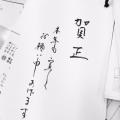 賀正
本年も宜しく
お願い申し上げます